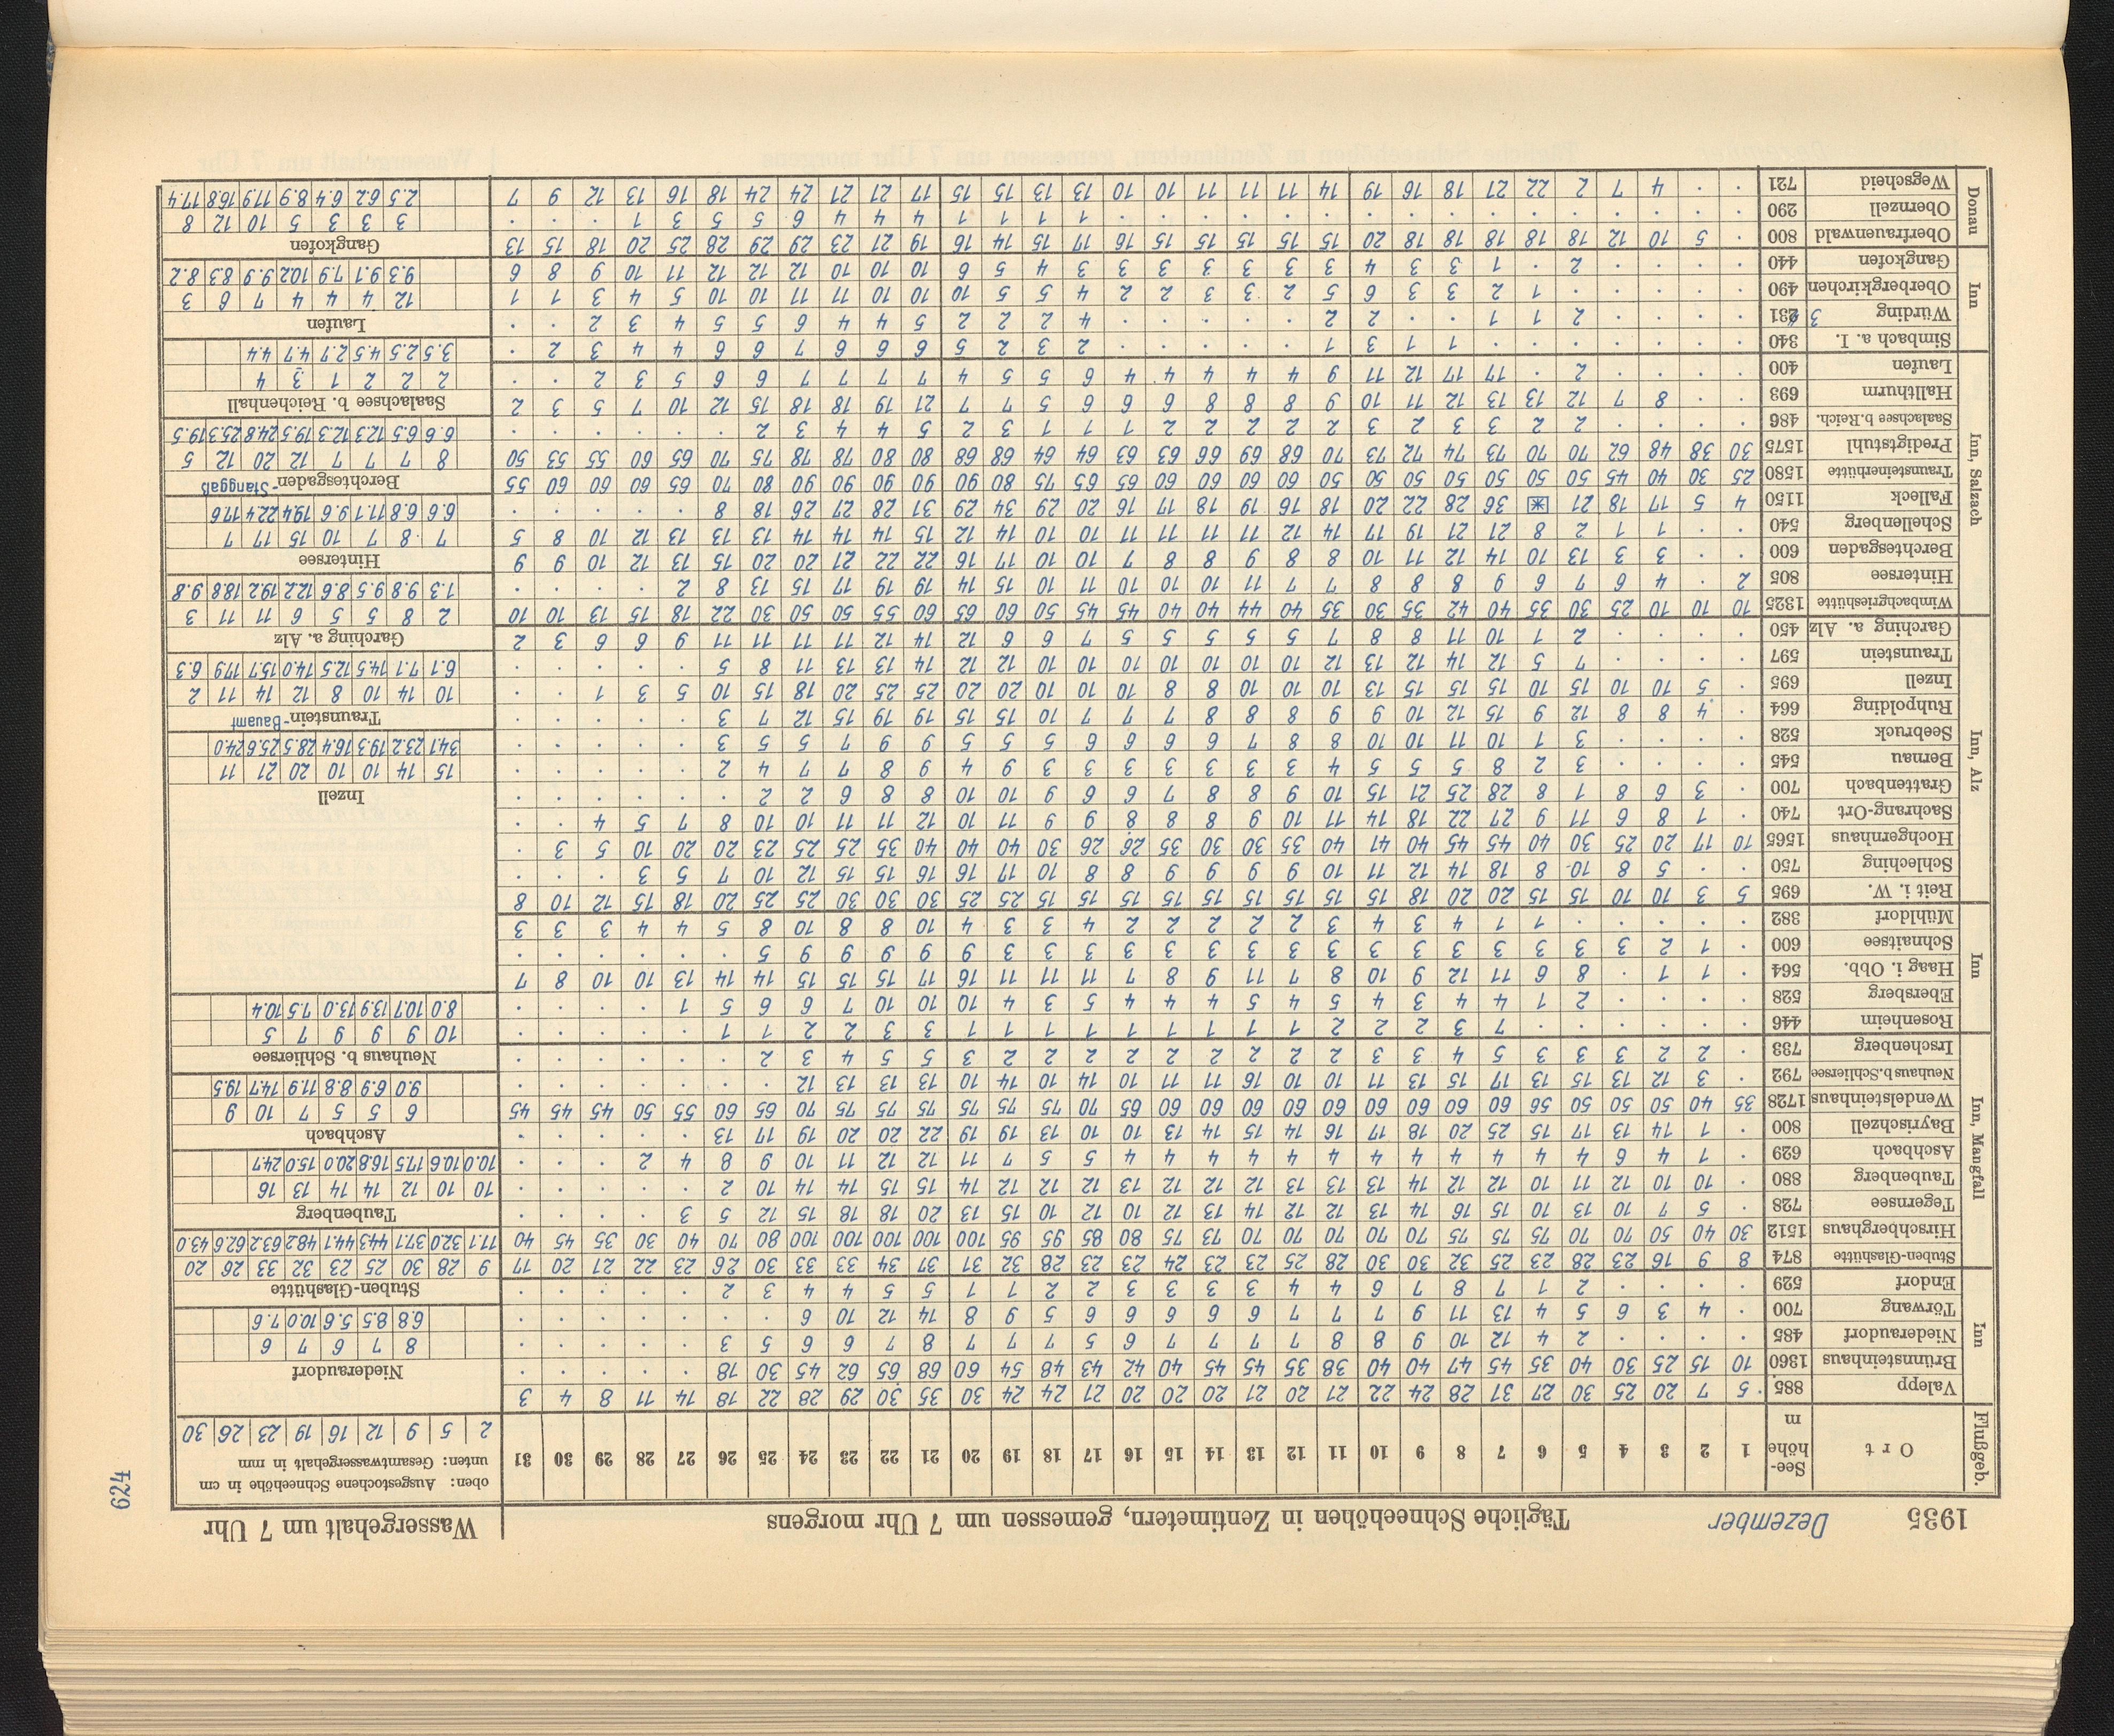 1935 Dezember Tägliche Schneehöhen in Zentimetern, gemessen um 7 Uhr morgens
Wassergehalt um 7 Uhr
624
Flußgeb. Ort See-höhe m 1 2 3 4 5 6 7 8 9 10 11 12 13 14 15 16 17 18 19 20 21 22 23 24 25 26 27 28 29 30 31
oben: Ausgestochene Schneehöhe in cm
unten: Gesamtwassergehalt in mm
2 5 9 12 16 19 23 26 30
Inn
Valepp 885 5 7 20 25 30 27 31 28 24 22 21 20 21 20 20 20 21 24 24 30 35 30 29 28 22 18 14 11 8 4 3
Brünnsteinhaus 1360 10 15 25 30 40 35 45 47 40 40 38 35 45 45 40 42 43 48 54 60 68 65 62 45 30 18 . . . . .
Niederaudorf 485 . . . . 2 4 12 10 9 8 8 7 7 7 7 6 5 7 7 7 8 7 6 6 5 3 . . . . .
Törwang 700 . 4 3 6 5 4 13 11 9 7 7 7 6 6 6 6 6 5 9 8 14 12 10 6 . . . . . . .
Endorf 529 . . . . 2 1 7 8 7 6 4 4 3 3 3 3 2 2 1 1 5 5 4 4 3 2 . . . . .
Inn, Mangfall
Stuben-Glashütte 874 8 9 16 23 28 23 25 32 30 30 28 25 23 23 24 23 23 28 32 31 37 34 33 33 30 26 23 22 21 20 17
Hirschberghaus 1512 30 40 50 70 70 75 75 75 70 70 70 70 70 73 75 80 85 95 95 100 100 100 100 100 80 70 40 30 35 45 40
Tegernsee 728 . 5 7 10 13 10 15 16 14 13 12 12 14 13 12 10 12 10 15 13 20 18 18 15 12 5 3 . . . .
Taubenberg 880 . 10 10 12 11 10 12 12 14 13 13 13 12 12 12 13 12 12 12 14 15 15 14 14 10 2 . . . . .
Aschbach 629 . 1 4 6 4 4 4 4 4 4 4 4 4 4 4 4 5 5 7 11 12 12 11 10 9 8 4 2 . . .
Bayrischzell 800 . 1 14 13 17 15 25 20 18 17 16 14 15 14 13 10 10 13 19 19 22 20 20 19 17 13 . . . . .
Wendelsteinhaus 1728 35 40 50 50 50 56 60 60 60 60 60 60 60 60 60 65 70 75 75 75 75 75 75 70 65 60 55 50 45 45 45
Neuhaus b. Schliersee 792 . 3 12 13 15 13 17 15 13 11 10 10 16 11 11 10 14 10 14 10 13 13 13 12 . . . . . . .
Irschenberg 733 . 2 2 3 3 3 5 4 3 3 2 2 2 2 2 2 2 2 2 3 5 5 4 3 2 . . . . . .
Inn
Rosenheim 446 . . . . . . 7 3 2 2 2 1 1 1 1 1 1 1 1 1 3 3 2 2 1 1 . . . . .
Ebersberg 528 . . . . 2 1 4 4 3 4 5 4 5 4 4 4 5 3 4 10 10 10 7 6 6 5 1 . . . .
Haag i. Obb. 564 . 1 1 . 8 6 11 12 9 10 8 7 11 9 8 7 11 11 11 16 17 15 15 15 14 14 13 10 10 8 7
Schnaitsee 600 . 1 2 3 3 3 3 3 3 3 3 3 3 3 3 3 3 3 3 9 9 9 9 9 5 . . . . . .
Mühldorf 382 . . . . . 1 1 4 3 4 3 2 2 2 2 2 4 3 3 4 10 8 8 10 8 5 4 4 3 3 3
Inn, Alz
Reit i. W. 695 5 3 10 10 15 15 20 20 18 15 15 15 15 15 15 15 15 15 25 25 30 30 30 25 25 20 18 15 12 10 8
Schleching 750 . . 5 8 10 8 18 14 12 11 10 9 9 9 9 8 8 10 17 16 16 15 15 12 10 7 5 3 . . .
Hochgernhaus 1565 10 17 20 25 30 40 45 45 40 41 40 35 30 30 35 26 26 30 40 40 40 35 25 25 23 20 20 10 5 3 .
Sachrang-Ort 740 . 1 8 6 11 9 27 22 18 14 11 10 9 8 8 8 9 9 11 10 12 11 11 10 10 8 7 5 4 . .
Grattenbach 700 . 3 6 8 1 8 28 25 21 15 10 9 8 8 7 6 6 9 10 10 8 8 6 2 2 . . . . . .
Bernau 545 . . . . 3 2 8 5 5 5 4 3 3 3 3 3 3 3 9 4 9 8 7 7 4 2 . . . . .
Seebruck 528 . . . . 3 1 10 11 10 10 8 8 7 6 6 6 6 5 5 5 9 9 7 5 5 3 . . . . .
Ruhpolding 664 . 4 8 8 12 9 15 12 10 9 9 8 8 8 7 7 7 10 15 15 19 19 15 12 7 3 . . . . .
Inzell 695 . 5 10 10 15 10 15 15 15 13 10 10 10 8 8 10 10 10 20 20 25 25 20 18 15 10 5 3 1 . .
Traunstein 597 . . . . 7 5 12 14 12 13 12 10 10 10 10 10 10 10 12 12 14 13 13 11 8 5 . . . . .
Garching a. Alz 450 . . . . 2 1 10 11 8 8 7 5 5 5 5 5 7 6 6 12 14 12 11 11 11 11 9 6 6 3 2
Inn, Salzach
Wimbachgrieshütte 1325 10 10 10 25 30 35 40 42 35 30 35 40 44 40 40 45 45 50 60 65 60 55 50 50 30 22 18 15 13 10 10
Hintersee 805 2 . 4 6 7 6 9 8 8 8 7 7 11 10 10 10 11 10 15 14 19 19 17 15 13 8 2 . . . .
Berchtesgaden 600 . . 3 3 13 10 14 12 11 10 8 8 9 8 8 7 10 10 17 16 22 22 21 20 20 15 13 12 10 9 9
Schellenberg 540 . . 1 1 2 8 21 21 19 17 14 12 11 11 11 11 10 10 14 12 15 14 14 14 13 13 13 12 10 8 5
Falleck 1150 4 5 17 18 21 * 36 28 22 20 18 16 19 18 17 16 20 29 34 29 31 28 27 26 18 8 . . . . .
Traunsteinerhütte 1580 25 30 40 45 50 50 50 50 50 50 50 60 60 60 60 60 65 75 80 90 90 90 90 90 80 70 65 60 60 60 55
Predigtstuhl 1575 30 38 48 62 70 70 73 74 72 73 70 68 69 66 63 63 64 64 68 68 80 80 78 78 75 70 65 60 55 53 50
Saalachsee b. Reich. 486 . . . . 2 2 3 3 2 3 2 2 2 2 2 1 1 1 3 2 5 4 4 3 2 . . . . . .
Hallthurm 693 . . 8 7 12 13 13 12 11 10 9 8 8 8 6 6 6 5 7 7 21 19 18 18 15 12 10 7 5 3 2
Laufen 400 . . . . 2 . 17 17 12 11 9 4 4 4 4 4 6 5 5 4 7 7 7 7 6 6 5 3 2 . .
Inn
Simbach a. I. 340 . . . . . . . 1 1 3 1 . . . . . 2 3 2 5 6 6 6 7 6 6 4 4 3 2 .
Würding . . . . 2 1 1 . . 2 2 . . . . . 4 2 2 2 5 4 4 6 5 5 4 3 2 . .
Oberbergkirchen 490 . . . . . 1 2 3 3 6 5 2 3 3 2 2 4 5 5 10 10 10 11 11 10 10 5 4 3 1 1
Gangkofen 440 . . . . 2 . 1 3 3 4 3 3 3 3 3 3 3 4 5 6 10 10 10 12 12 12 11 10 9 8 6
Donau
Oberfrauenwald 800 . 5 10 12 18 18 18 18 18 20 15 15 15 15 15 16 17 15 14 16 19 21 23 29 29 28 25 20 18 15 13
Obernzell 290 . . . . . . . . . . . . . . . . 1 1 1 1 4 4 4 6 5 5 3 1 . . .
Wegscheid 721 . . 4 7 2 22 27 18 16 19 14 11 11 11 10 10 13 13 15 15 17 21 21 24 24 18 16 13 12 9 7
Niederaudorf
8 7 6 7 6
6.8 8.5 5.6 10.0 7.6
Stuben-Glashütte
9 28 30 25 23 32 33 26 20
11.1 32.0 37.1 44.3 44.1 48.2 63.2 62.6 43.0
Taubenberg
10 10 12 14 14 13 16
10.0 10.6 17.5 16.8 20.0 15.0 24.7
Aschbach
6 5 5 7 10 9
9.0 6.9 8.8 11.9 14.7 19.5
Neuhaus b. Schliersee
10 9 9 9 7 5
8.0 10.7 13.9 13.0 7.5 10.4
Inzell
15 14 10 10 20 21 11
34.1 23.2 19.3 16.4 28.5 25.6 24.0
Traunstein-Bauamt
10 14 10 8 12 14 11 2
6.1 7.1 14.5 12.5 14.0 15.7 17.9 6.3
Garching a. Alz
2 8 5 5 6 11 11 3
1.3 9.8 9.5 8.6 12.2 19.2 18.8 9.8
Hintersee
7 8 7 10 15 17 7
6.6 6.8 11.1 9.6 19.4 22.4 17.6
Berchtesgaden-Stanggaß
8 7 7 7 12 20 12 5
6.6 6.5 12.3 12.3 19.5 24.8 25.3 19.5
Saalachsee b. Reichenhall
2 2 2 1 3 4
3.5 2.5 4.5 2.7 4.7 4.4
Laufen
12 4 4 4 7 6 3
9.3 9.1 7.9 10.2 9.9 8.3 8.2
Gangkofen
3 3 3 5 10 12 8
2.5 6.2 6.4 8.9 17.9 16.8 17.4